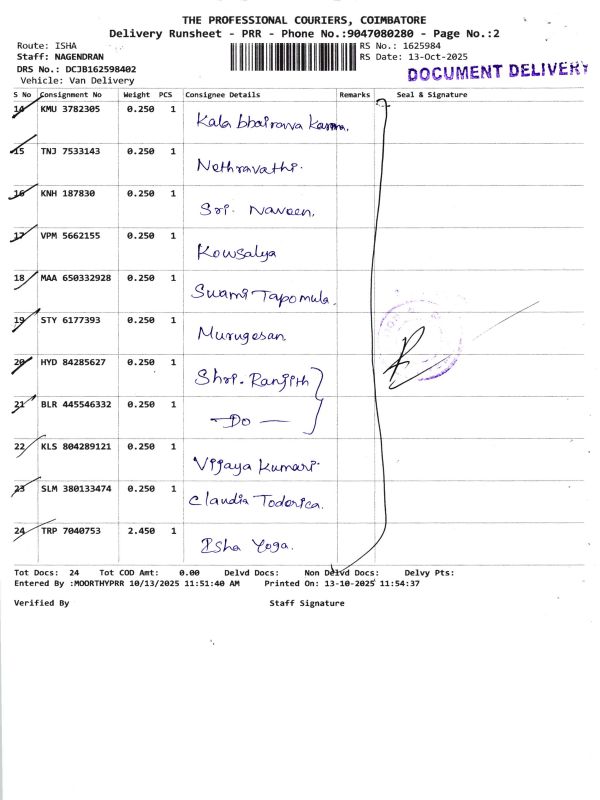 THE PROFESSIONAL COURIERS, COIMBATORE
Delivery Runsheet - PRR - Phone No.:9047080280 - Page No.:2
Route: ISHA RS No.: 1625984
Staff: NAGENDRAN RS Date: 13-Oct-2025
DRS No.: DCJB162598402 DOCUMENT DELIVERY
Vehicle: Van Delivery
S No Consignment No Weight PCS Consignee Details Remarks Seal & Signature
14 KMU 3782305 0.250 1
Kala bhairava Karma.
15 TNJ 7533143 0.250 1
Nethravathi.
16 KNH 187830 0.250 1
Sri. Naveen.
17 VPM 5662155 0.250 1
Kowsalya
18 MAA 650332928 0.250 1
Swami Tapomula.
19 STY 6177393 0.250 1
Murugesan
20 HYD 84285627 0.250 1
Shri. Ranjith
21 BLR 445546332 0.250 1
— Do —
22 KLS 804289121 0.250 1
Vijaya Kumari.
23 SLM 380133474 0.250 1
Claudia Todorica.
24 TRP 7040753 2.450 1
Isha Yoga.
Tot Docs: 24 Tot COD Amt: 0.00 Delvd Docs: Non Delvd Docs: Delvy Pts:
Entered By :MOORTHYPRR 10/13/2025 11:51:40 AM Printed On: 13-10-2025 11:54:37
Verified By Staff Signature